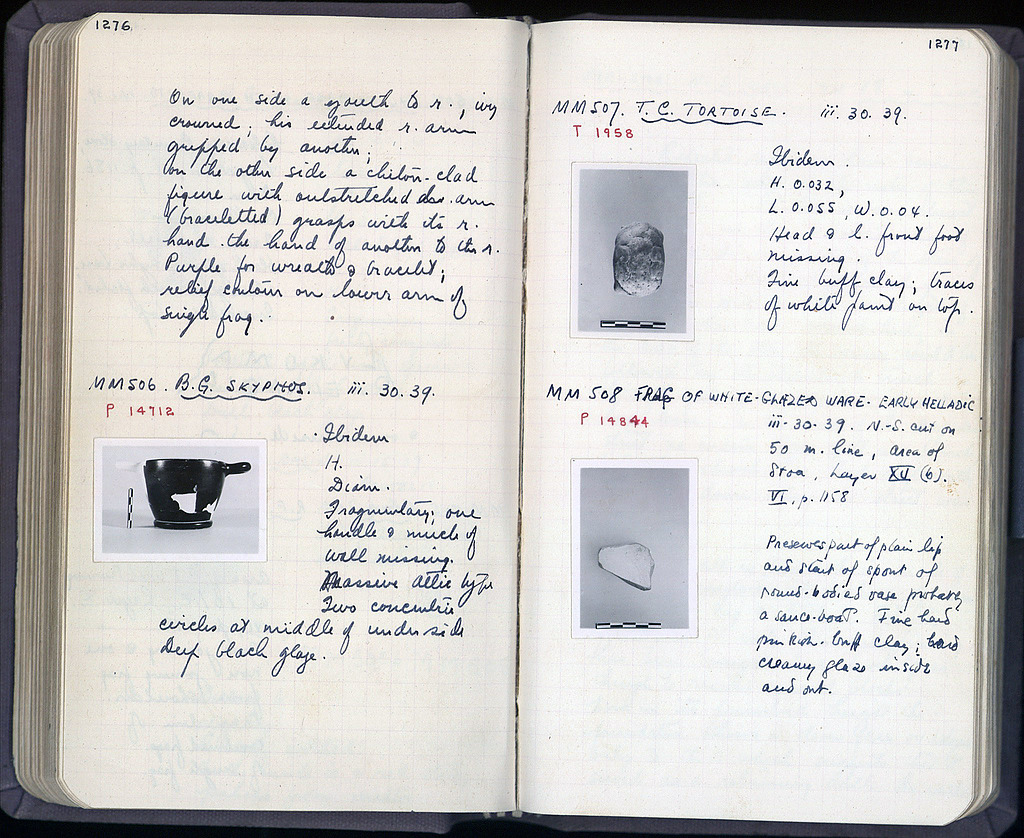 1276
On one side a youth to r., ivy
crowned; his extended r. arm
gripped by another;
on the other side a chiton-clad
figure with outstretched arm
(braceletted) grasps with its r.
hand the hand of another to the r.
Purple for wreath & bracelet;
relief contour on lower arm of
single frag.
MM506. B.G. SKYPHOS. iii. 30. 39.
P 14712
Ibidem
H.
Diam.
Fragmentary; one
handle & much of
wall missing.
Massive Attic type
Two concentric
circles at middle of underside
Deep black glaze.
1277
MM507. T.C. TORTOISE. iii. 30. 39.
T 1958
Ibidem.
H. 0.032,
L. 0.055, W. 0.04.
Head & l. front foot
missing.
Fine buff clay; traces
of white paint on top.
MM 508 FRAG OF WHITE-GLAZED WARE - EARLY HELLADIC
P 14844
iii-30-39. N-S. cut on
50 m. line, area of
Stoa, Layer XV (6).
VI, p. 1158
Preserves part of plain lip
and start of spout of
round-bodied vase probably
a sauce-boat. Fine hard
pinkish-buff clay; hard
creamy glaze inside
and out.